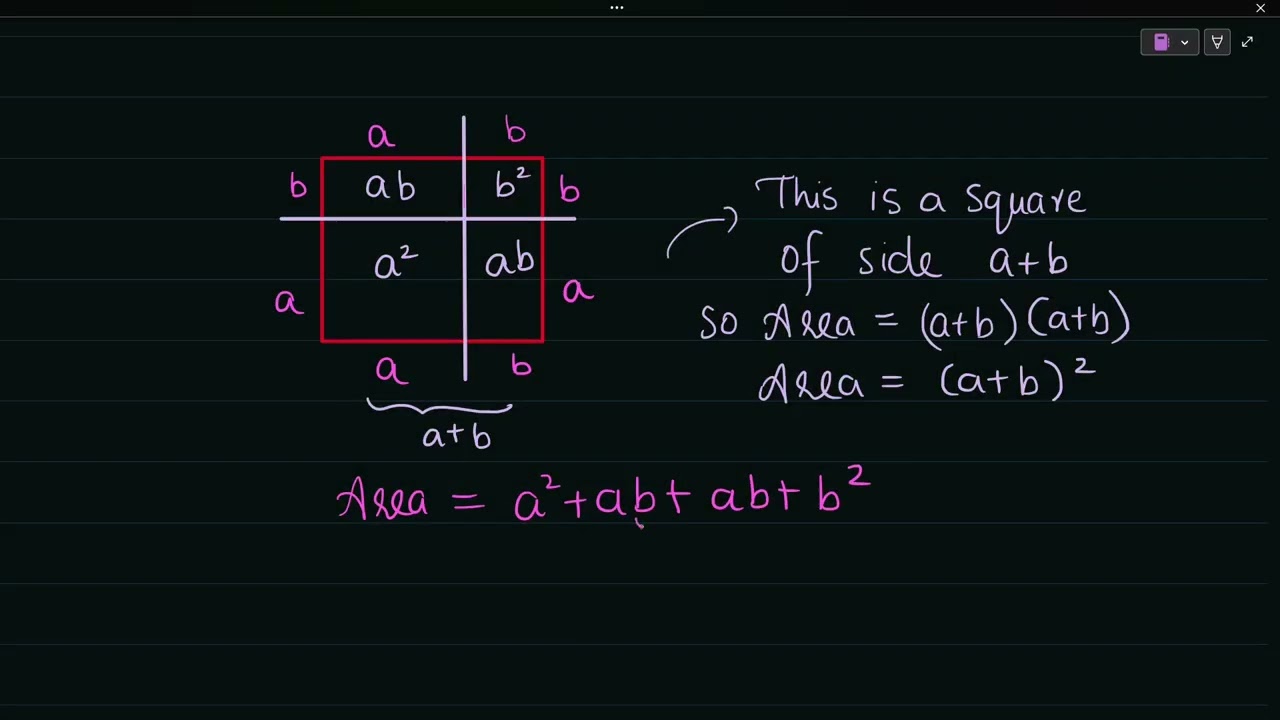 a b
b ab b² b
a² ab
a a
a b
a+b
This is a square
of side a+b
so Area = (a+b)(a+b)
Area = (a+b)²
Area = a²+ab+ ab+ b²